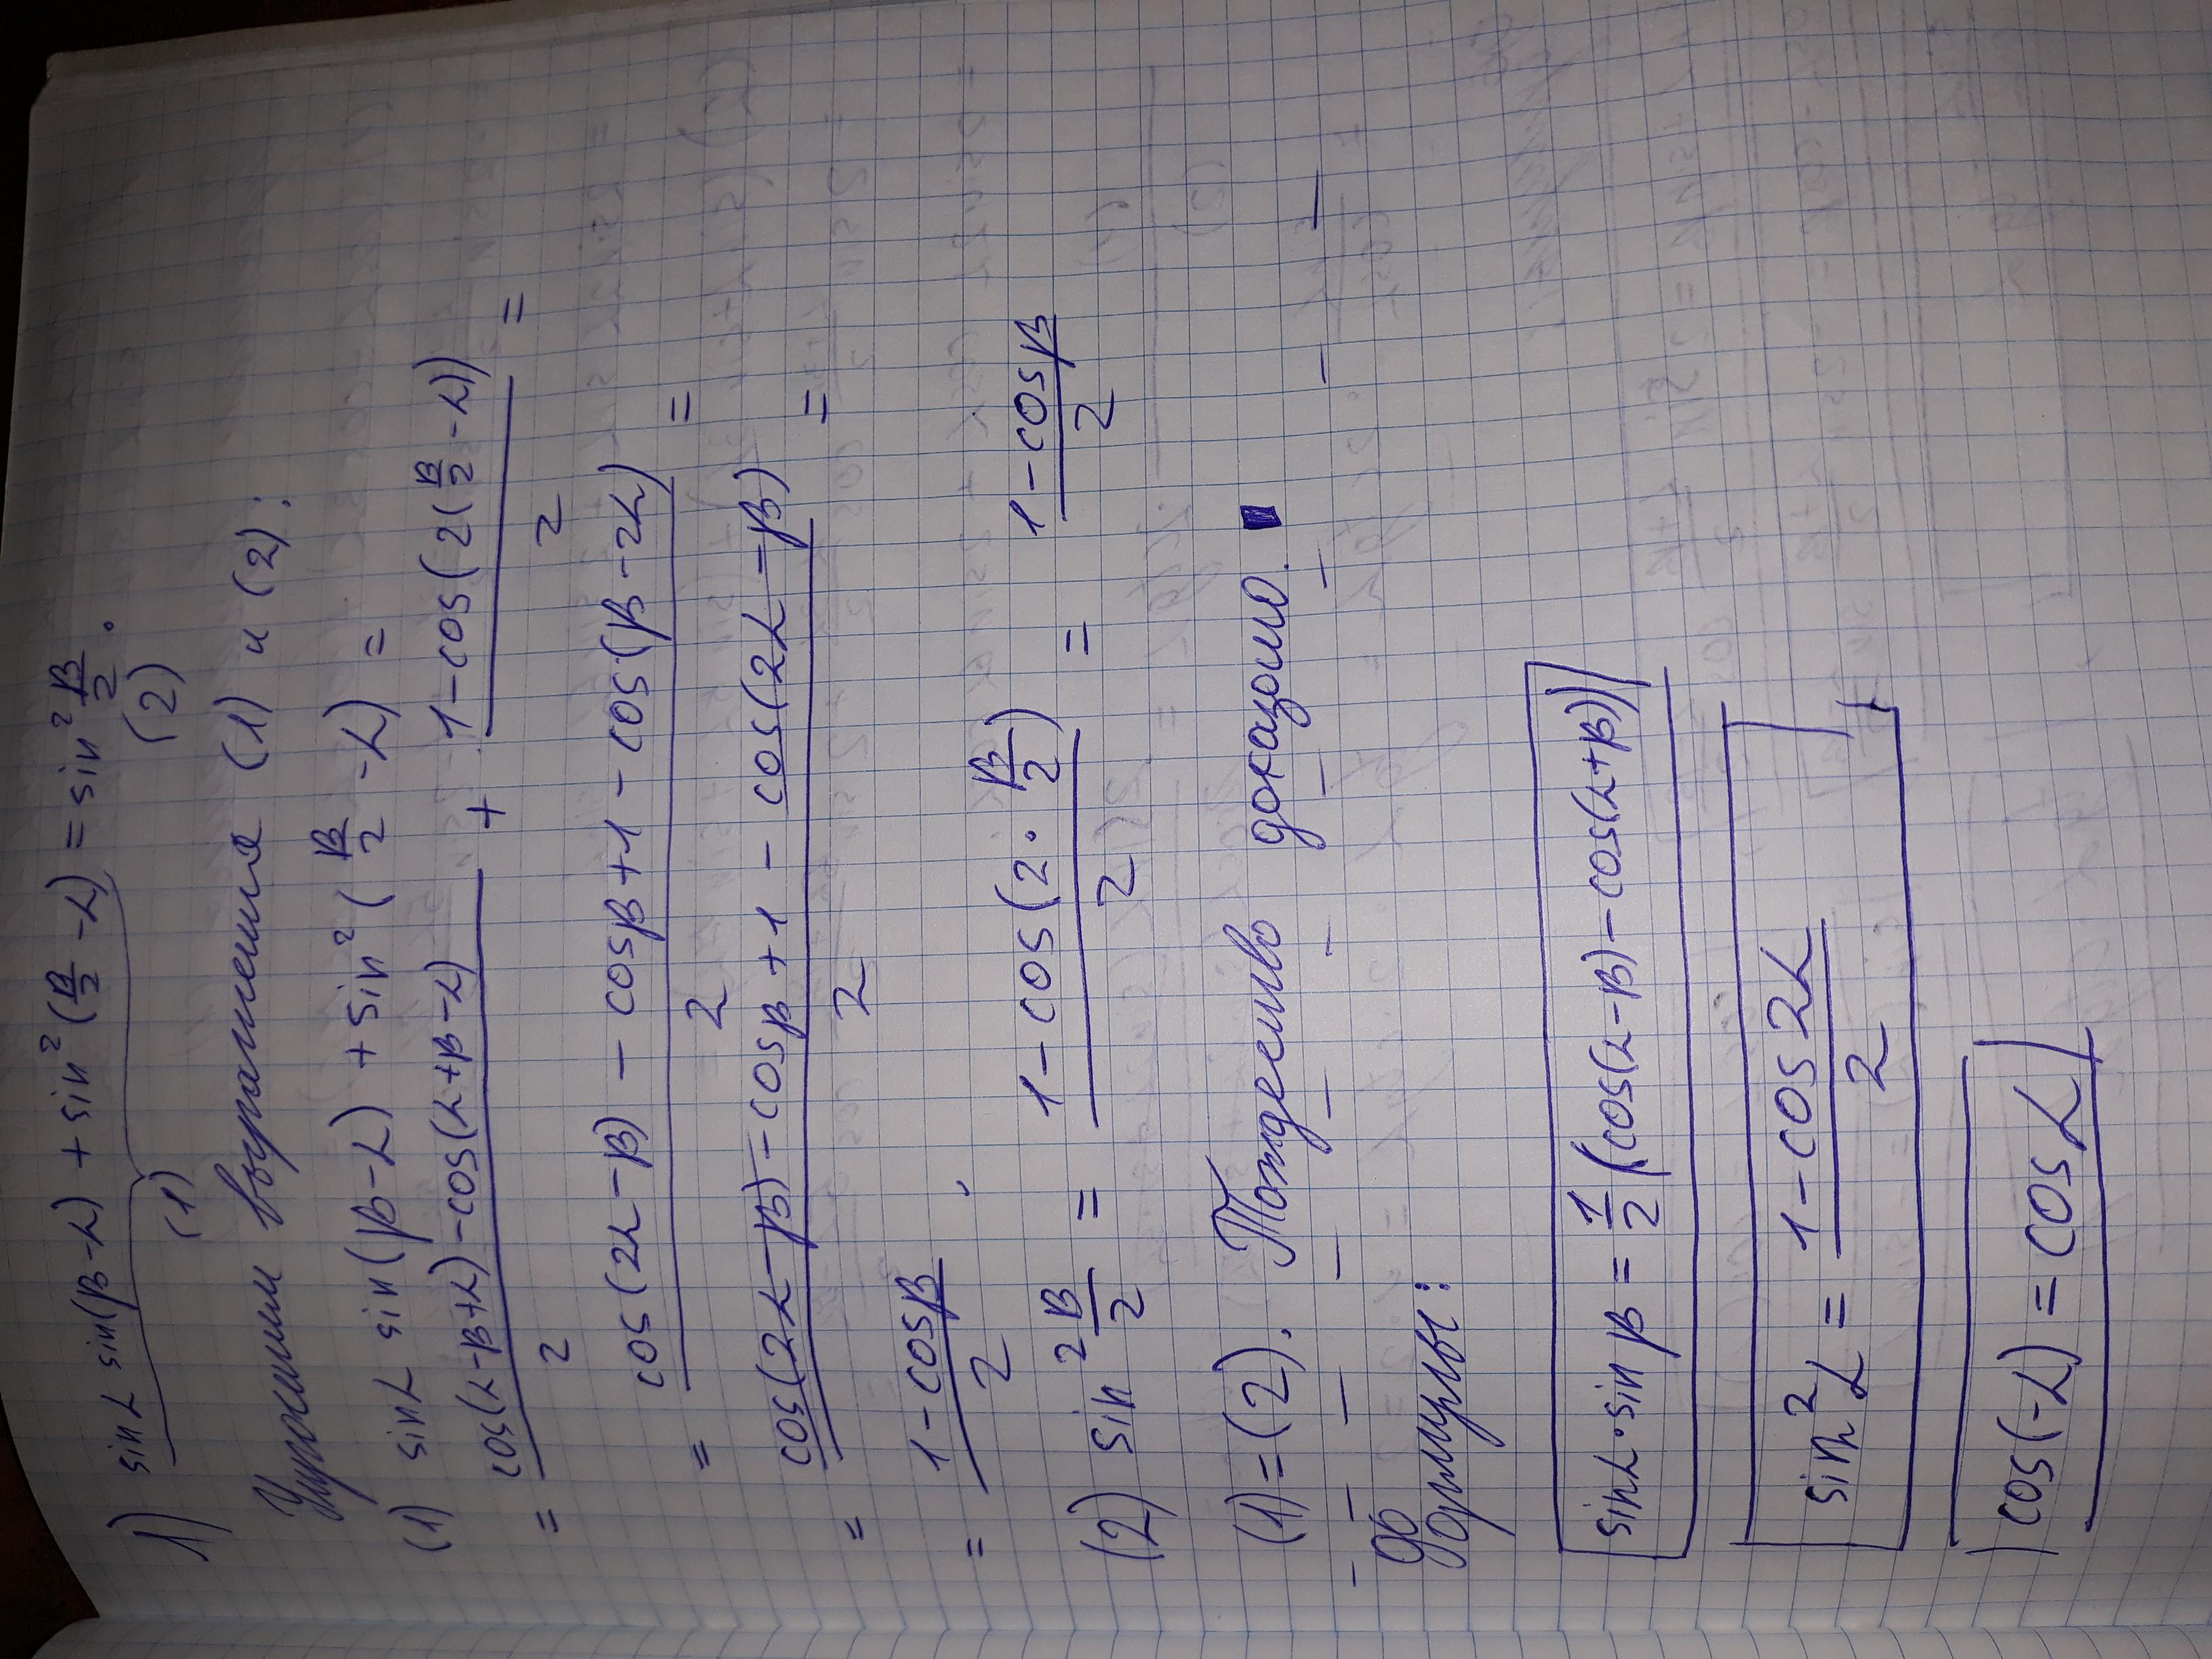 1) sinα sin(β-α) + sin²(β/2 -α) = sin² β/2.
(1) (2)
Упростим выражения (1) и (2):
(1) sinα sin(β-α) + sin²(β/2 -α) =
= (cos(α-β+α)-cos(α+β-α))/2 + (1-cos(2(β/2 -α)))/2 =
= (cos(2α-β) - cosβ+1 - cos(β-2α))/2 =
= (cos(2α-β)-cosβ+1 - cos(2α-β))/2 =
= (1-cosβ)/2 ,
(2) sin² β/2 = (1-cos(2·β/2))/2 = (1-cosβ)/2
(1)=(2). Тождество доказано. ■
Формулы:
sinα·sinβ = 1/2(cos(α-β)-cos(α+β))
sin²α = (1-cos2α)/2
cos(-α) = cosα